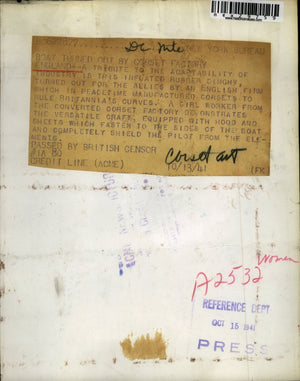 NEW YORK BUREAU
BOAT TURNED OUT BY CORSET FACTORY
ENGLAND--A TRIBUTE TO THE ADAPTABILITY OF
INDUSTRY IS THIS INFLATED RUBBER DINGHY,
TURNED OUT FOR THE ALLIES BY AN ENGLISH FIRM
WHICH IN PEACETIME MANUFACTURED CORSETS TO
RULE BRITANNIA'S CURVES. A GIRL WORKER FROM
THE CONVERTED CORSET FACTORY DEMONSTRATES
THE VERSATILE CRAFT, EQUIPPED WITH HOOD AND
SHEETS WHICH FASTEN TO THE SIDES OF THE BOAT
AND COMPLETELY SHIELD THE PILOT FROM THE ELE-
MENTS.
PASSED BY BRITISH CENSOR
CREDIT LINE (ACME) 10/13/41 (FK
Corset
Women
A2532
REFERENCE DEPT
OCT 15 194
PRESS